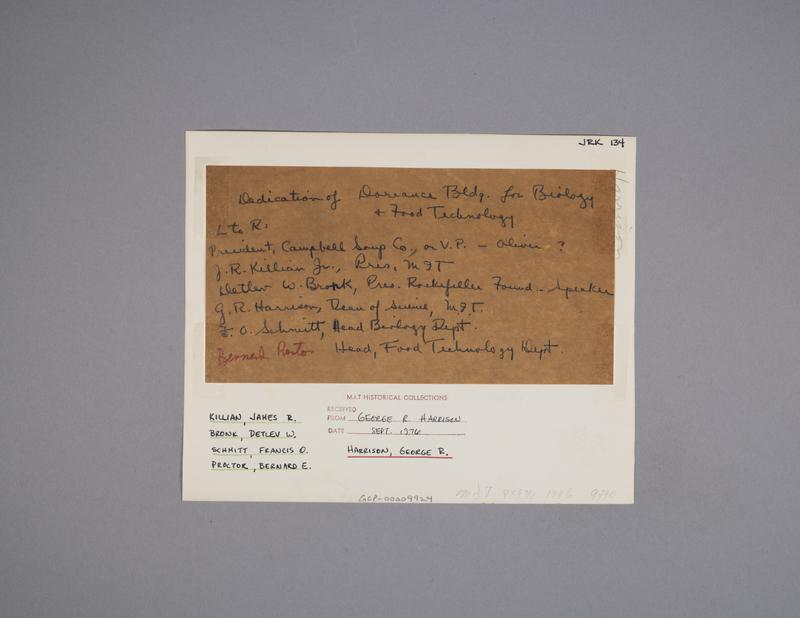 JRK 134
Harrison
Dedication of Dorrance Bldg. for Biology
+ Food Technology
L to R:
President, Campbell Soup Co., or V.P. - Oliver ?
J. R. Killian Jr., Pres, MIT
Detlev W. Bronk, Pres. Rockefeller Found. - Speaker
G. R. Harrison, Dean of Science, M.I.T.
F. O. Schmitt, Head Biology Dept.
Bernard Head, Food Technology Dept.
M.I.T HISTORICAL COLLECTIONS
RECEIVED
FROM GEORGE R HARRISON
DATE SEPT. 1976
KILLIAN, JAMES R.
BRONK, DETLEV W.
SCHMITT, FRANCIS O.
PROCTOR, BERNARD E.
HARRISON, GEORGE R.
GCP-00009924